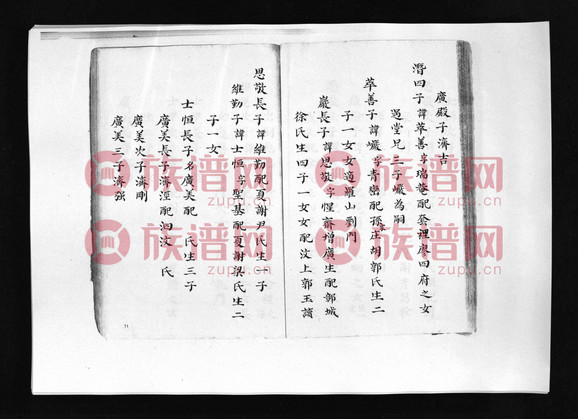 廣殿子濟古
潛四子諱萃善字瑞菴配登裡廖四府之女
過堂兄三子巘為嗣
萃善子諱巘字青巒配孫庄胡郭氏生二
子一女女適羅山劉門
巖長子諱思敬字惺齋增廣生配郭城
徐氏生四子一女女配汶上郭玉讀
思敬長子諱維勤配夏謝尹氏生一子
維勤子諱士恒字聖基配夏謝梁氏生二
子一女
士恒長子名廣美配 氏生三子
廣美長子濟涇配泗汶 氏
廣美次子濟剛
廣美三子濟强
族谱网
zupu.cn
族谱网
zupu.cn
族谱网
zupu.cn
族谱网
zupu.cn